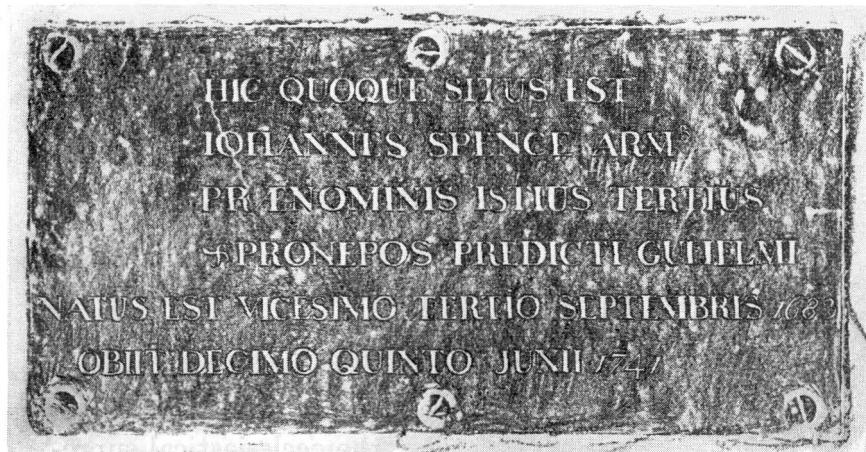 HIC QUOQUE SITUS EST
IOHANNES SPENCE ARMR
PRÆNOMINIS ISTIUS TERTIUS
& PRONEPOS PREDICTI GULIELMI
NATUS EST VICESIMO TERTIO SEPTEMBRIS 1683
OBIIT DECIMO QUINTO JUNII 1741